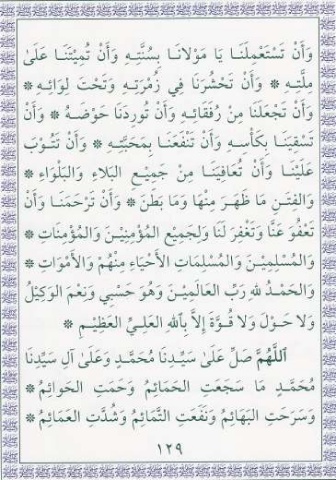 وَأَنْ تَسْتَعْمِلَنَا يَا مَوْلَانَا بِسُنَّتِهِ وَأَنْ تُمِيتَنَا عَلَىٰ
مِلَّتِهِ ❊ وَأَنْ تَحْشُرَنَا فِي زُمْرَتِهِ وَتَحْتَ لِوَائِهِ ❊
وَأَنْ تَجْعَلَنَا مِنْ رُفَقَائِهِ وَأَنْ تُورِدَنَا حَوْضَهُ ❊ وَأَنْ
تَسْقِيَنَا بِكَأْسِهِ وَأَنْ تَنْفَعَنَا بِمَحَبَّتِهِ ❊ وَأَنْ تَتُوْبَ
عَلَيْنَا وَأَنْ تُعَافِيَنَا مِنْ جَمِيْعِ الْبَلَاءِ وَالْبَلْوَاءِ ❊
وَالْفِتَنِ مَا ظَهَرَ مِنْهَا وَمَا بَطَنَ ❊ وَأَنْ تَرْحَمَنَا وَأَنْ
تَعْفُوَ عَنَّا وَتَغْفِرَ لَنَا وَلِجَمِيْعِ الْمُؤْمِنِيْنَ وَالْمُؤْمِنَاتِ ❊
وَالْمُسْلِمِيْنَ وَالْمُسْلِمَاتِ الْأَحْيَاءِ مِنْهُمْ وَالْأَمْوَاتِ ❊
وَالْحَمْدُ لِلهِ رَبِّ الْعَالَمِيْنَ وَهُوَ حَسْبِي وَنِعْمَ الْوَكِيْلُ
وَلَا حَوْلَ وَلَا قُوَّةَ إِلاَّ بِاللهِ الْعَلِيِّ الْعَظِيْمِ ❊
اَللّٰهُمَّ صَلِّ عَلَىٰ سَيِّدِنَا مُحَمَّدٍ وَعَلَىٰ آلِ سَيِّدِنَا
مُحَمَّدٍ مَا سَجَعَتِ الْحَمَائِمُ وَحَمَتِ الْحَوَائِمُ ❊
وَسَرَحَتِ الْبَهَائِمُ وَنَفَعَتِ التَّمَائِمُ وَشُدَّتِ الْعَمَائِمُ ❊
١٢٩